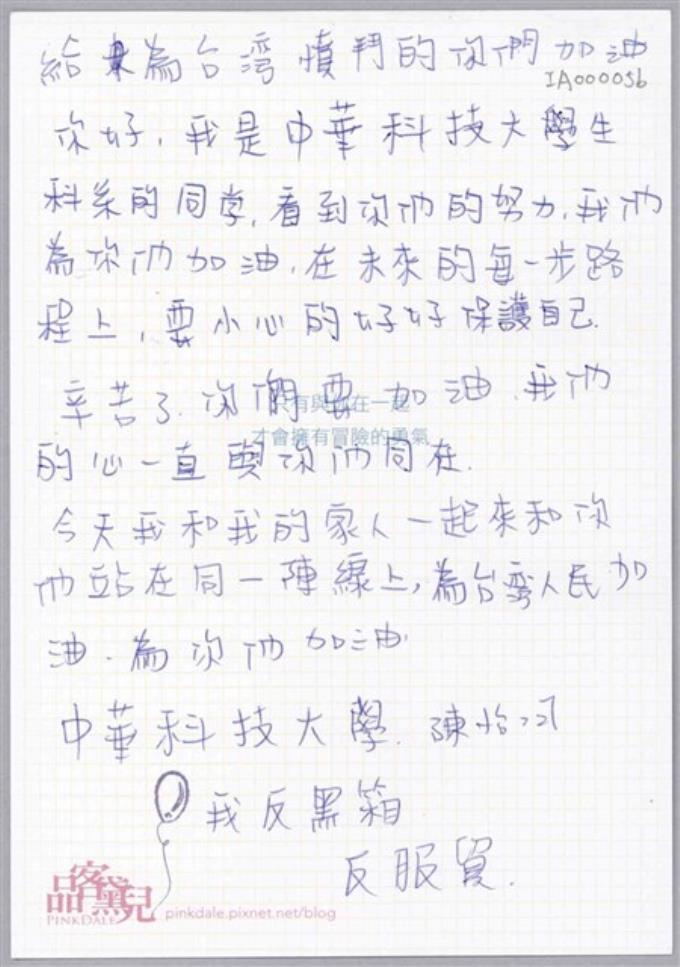 給為台灣憤鬥的你們加油
IA000056
你好,我是中華科技大學生
科系的同学,看到你們的努力,我們
為你們加油,在未來的每一步路
程上,要小心的好好保護自己.
辛苦了.你們要加油.我們
只有與你在一起
才會擁有冒險的勇氣
的心一直與你們同在.
今天我和我的家人一起來和你
們站在同一陣線上,為台灣人民加
油.為你們加油.
中華科技大學.陳怡
我反黑箱
反服貿.
品客黛兒
PINKDALE
pinkdale.pixnet.net/blog